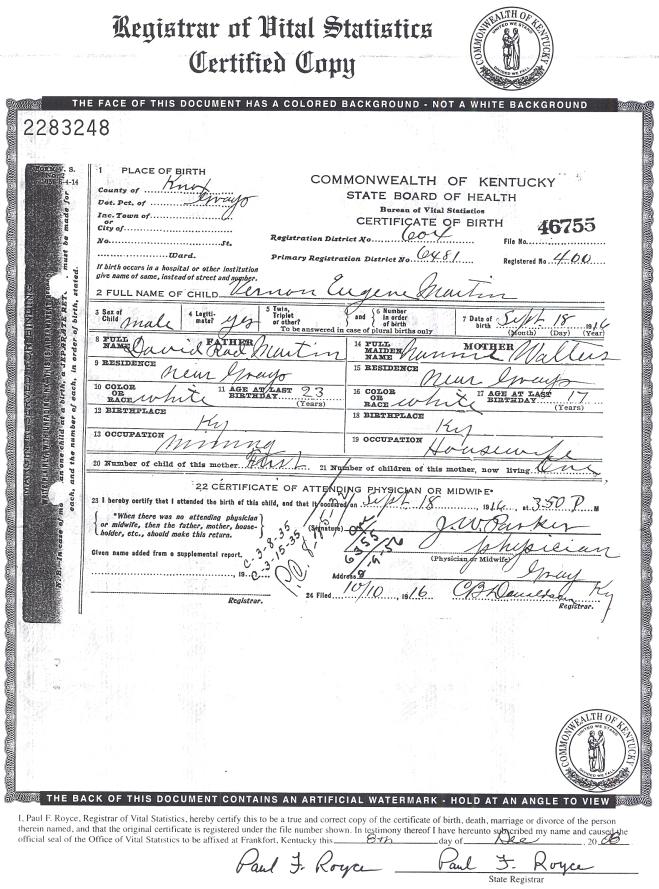 Registrar of Vital Statistics
Certified Copy
COMMONWEALTH OF KENTUCKY
UNITED WE STAND
DIVIDED WE FALL
THE FACE OF THIS DOCUMENT HAS A COLORED BACKGROUND - NOT A WHITE BACKGROUND
2283248
1 PLACE OF BIRTH
County of Knox
Vot. Pct. of Grays
Inc. Town of
or
City of
No. St.
Ward.
If birth occurs in a hospital or other institution
give name of same, instead of street and number.
COMMONWEALTH OF KENTUCKY
STATE BOARD OF HEALTH
Bureau of Vital Statistics
CERTIFICATE OF BIRTH
46755
Registration District No 604 File No.
Primary Registration District No. 6481 Registered No. 400
2 FULL NAME OF CHILD Vernon Eugene Martin
3 Sex of Child male 4 Legitimate? yes 5 Twin, Triplet or other? and 6 Number in order of birth 7 Date of birth Sept 18 1916
To be answered in case of plural births only (Month) (Day) (Year)
8 FULL NAME FATHER David Martin 14 FULL MAIDEN NAME MOTHER Nannie Walters
9 RESIDENCE near Grays 15 RESIDENCE near Grays
10 COLOR OR RACE white 11 AGE AT LAST BIRTHDAY 23 (Years) 16 COLOR OR RACE white 17 AGE AT LAST BIRTHDAY 17 (Years)
12 BIRTHPLACE Ky 18 BIRTHPLACE Ky
13 OCCUPATION mining 19 OCCUPATION Housewife
20 Number of child of this mother First 21 Number of children of this mother, now living One
22 CERTIFICATE OF ATTENDING PHYSICIAN OR MIDWIFE*
23 I hereby certify that I attended the birth of this child, and that it occurred on Sept 18 1916, at 3:50 P. M
*When there was no attending physician
or midwife, then the father, mother, householder, etc., should make this return.
(Signature) J. W. Parker
physician
(Physician or Midwife)
Given name added from a supplemental report.
, 19
Address Gray Ky
24 Filed 10/10, 1916 C B Donaldson
Registrar. Registrar.
C-3-8-35
C-3-15-35
COMMONWEALTH OF KENTUCKY
UNITED WE STAND
DIVIDED WE FALL
THE BACK OF THIS DOCUMENT CONTAINS AN ARTIFICIAL WATERMARK - HOLD AT AN ANGLE TO VIEW
I, Paul F. Royce, Registrar of Vital Statistics, hereby certify this to be a true and correct copy of the certificate of birth, death, marriage or divorce of the person
therein named, and that the original certificate is registered under the file number shown. In testimony thereof I have hereunto subscribed my name and caused the
official seal of the Office of Vital Statistics to be affixed at Frankfort, Kentucky this 8th day of Dec, 20
Paul F. Royce Paul F. Royce
State Registrar